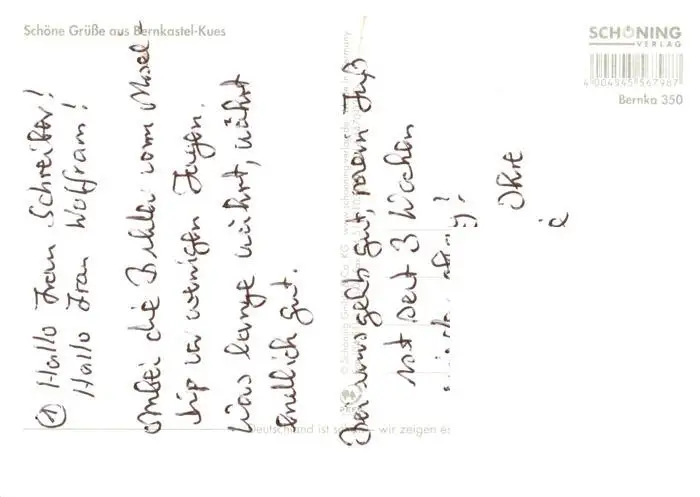 Schöne Grüße aus Bernkastel-Kues
SCHÖNING
VERLAG
4 004845 567987
Bernka 350
① Hallo Frau Schreiber!
Hallo Frau Wolfram!
Anbei die Bilder vom Mosel-
trip vor wenigen Tagen.
Was lange währt, währt
endlich gut.
Bei uns geht's gut, mein Fuß
ist seit 3 Wochen
Ihre
© Schöning GmbH & Co. KG www.schoening-verlag.de
Germany
Deutschland ist schön – wir zeigen es